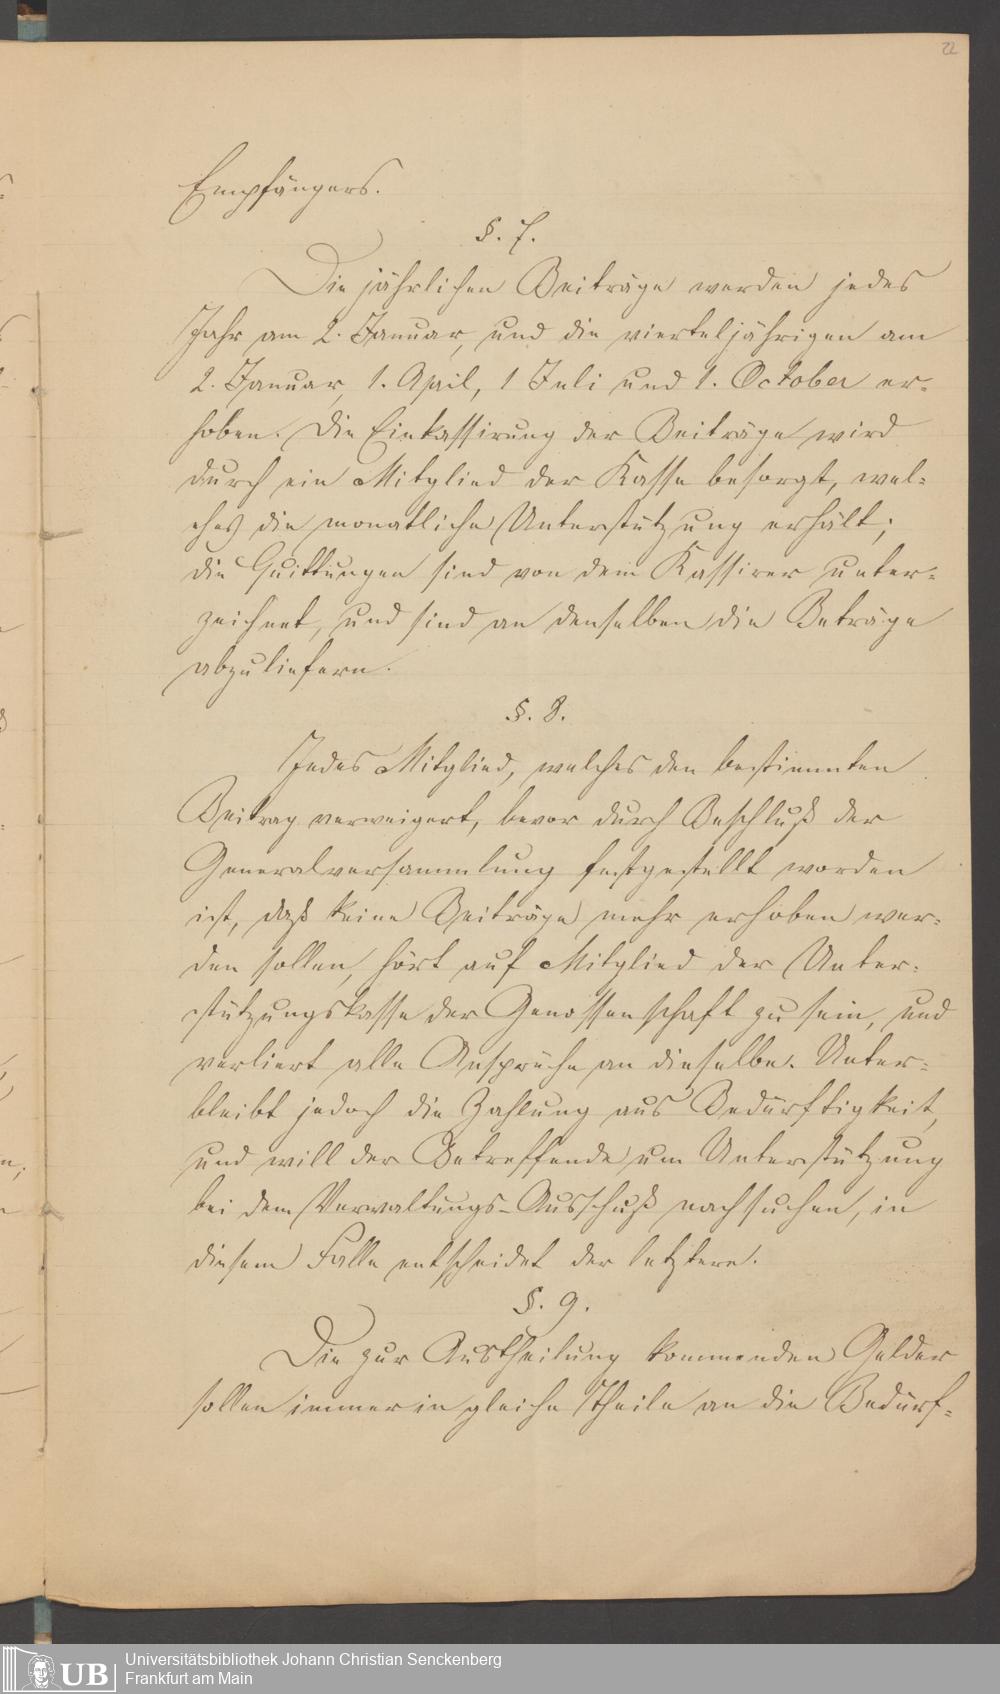 22
Empfängers.
§. 7.
Die jährlichen Beiträge werden jedes
Jahr am 2. Januar, und die vierteljährigen am
2. Januar, 1. April, 1 Juli und 1. October er-
hoben. Die Einkassirung der Beiträge wird
durch ein Mitglied der Kasse besorgt, wel-
ches die monatliche Unterstützung erhält;
die Quittungen sind von dem Kassirer unter-
zeichnet, und sind an denselben die Beträge
abzuliefern.
§. 8.
Jedes Mitglied, welches den bestimmten
Beitrag verweigert, bevor durch Beschluß der
Generalversammlung festgestellt worden
ist, daß keine Beiträge mehr erhoben wer-
den sollen, hört auf Mitglied der Unter-
stützungskasse der Genossenschaft zu sein, und
verliert alle Ansprüche an dieselbe. Unter-
bleibt jedoch die Zahlung aus Bedürftigkeit,
und will der Betreffende um Unterstützung
bei dem Verwaltungs-Ausschuß nachsuchen, in
diesem Falle entscheidet der letztere.
§. 9.
Die zur Austheilung kommenden Gelder
sollen immer in gleiche Theile an die Bedürf-
UB
Universitätsbibliothek Johann Christian Senckenberg
Frankfurt am Main